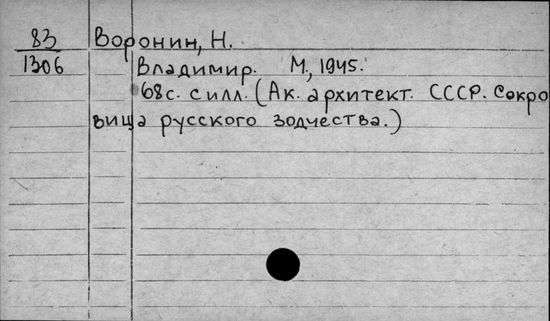 83 Воронин, Н.
1306 Владимир. М., 1945.
68с. с илл. (Ак. архитект. СССР. Сокро
вища русского зодчества.)